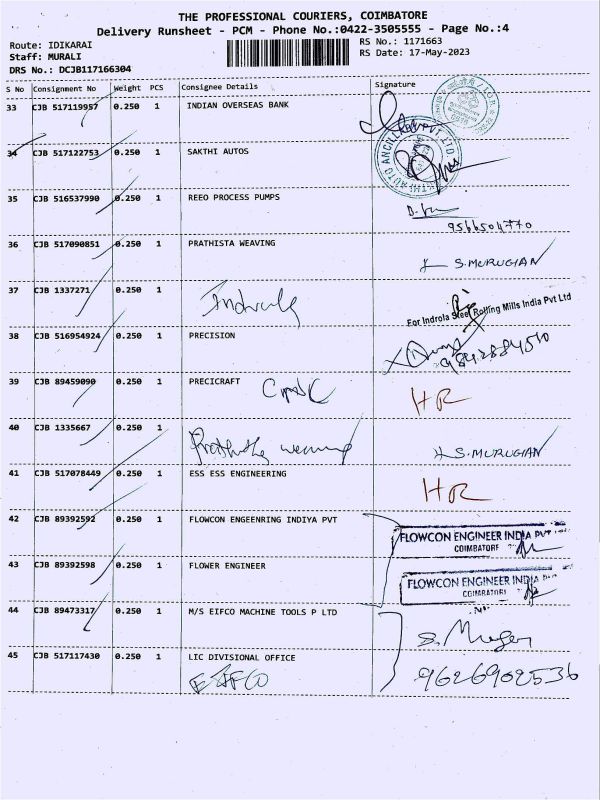 THE PROFESSIONAL COURIERS, COIMBATORE
Delivery Runsheet - PCM - Phone No.:0422-3505555 - Page No.:4
Route: IDIKARAI RS No.: 1171663
Staff: MURALI RS Date: 17-May-2023
DRS No.: DCJB117166304
S No Consignment No Weight PCS Consignee Details Signature
33 CJB 517119957 0.250 1 INDIAN OVERSEAS BANK
34 CJB 517122753 0.250 1 SAKTHI AUTOS
35 CJB 516537990 0.250 1 REEO PROCESS PUMPS
9566504770
36 CJB 517090851 0.250 1 PRATHISTA WEAVING
S. MURUGIAN
37 CJB 1337271 0.250 1
For Indrola Steel Rolling Mills India Pvt Ltd
38 CJB 516954924 0.250 1 PRECISION
9842884510
39 CJB 89459090 0.250 1 PRECICRAFT
HR
40 CJB 1335667 0.250 1 Prathistha weaving
S. MURUGIAN
41 CJB 517078449 0.250 1 ESS ESS ENGINEERING
HR
42 CJB 89392592 0.250 1 FLOWCON ENGEENRING INDIYA PVT
FLOWCON ENGINEER INDIA PVT
COIMBATORE
43 CJB 89392598 0.250 1 FLOWER ENGINEER
FLOWCON ENGINEER INDIA
COIMBATORE
44 CJB 89473317 0.250 1 M/S EIFCO MACHINE TOOLS P LTD
45 CJB 517117430 0.250 1 LIC DIVISIONAL OFFICE
9626902536